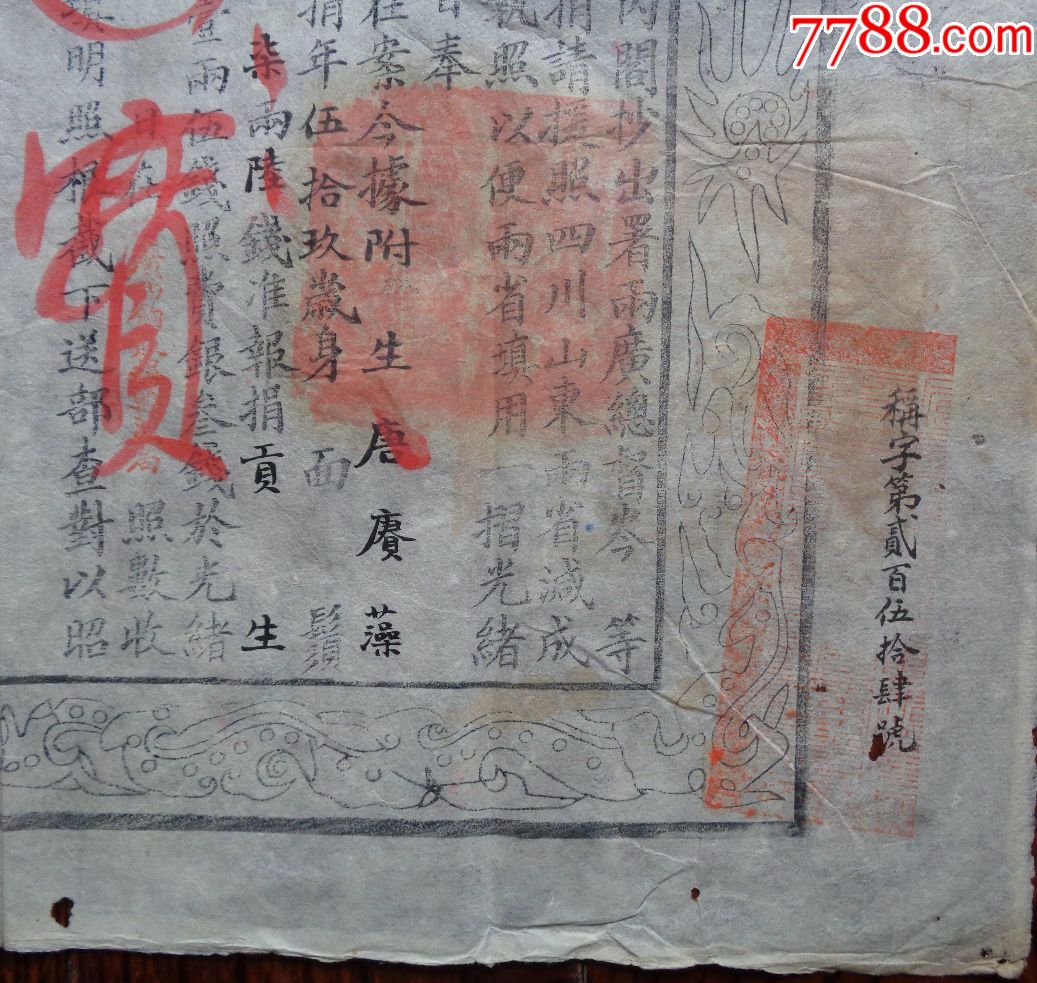 7788.com
稱字第貳百伍拾肆號
內閣抄出署兩廣總督岑 等
捐請援照四川山東兩省減成
執照以便兩省填用一摺光緒
日奉
在案今據附生唐賡藻
捐年伍拾玖歲身 面 鬚
柒兩陸錢准報捐貢生
壹兩伍錢照費銀叁錢於光緒
照數收
填明照根截下送部查對以昭
實